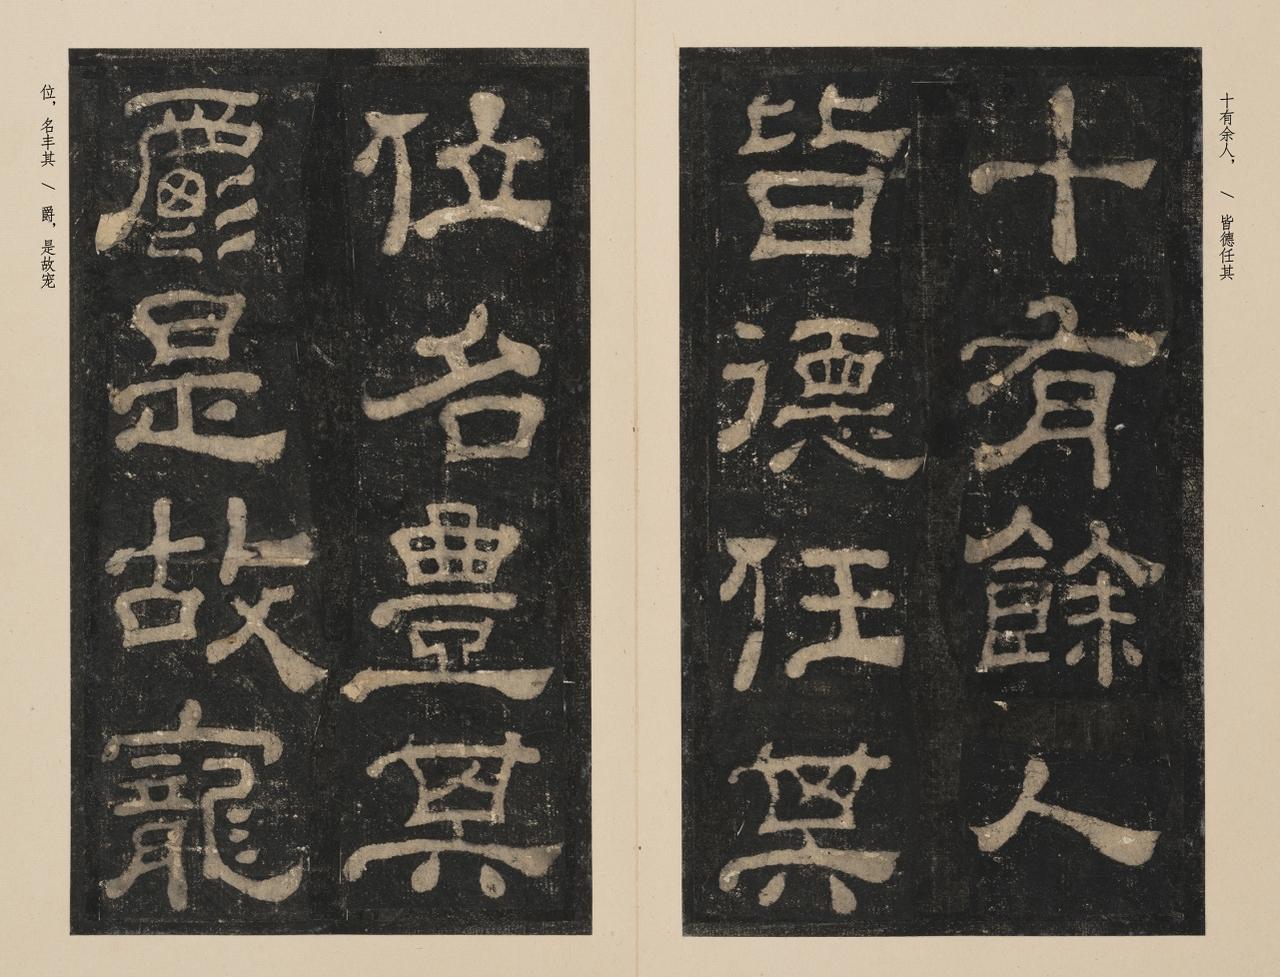 十有余人，／皆德任其
十有餘人
皆德任其
位名豊其
爵是故寵
位，名丰其／爵，是故宠